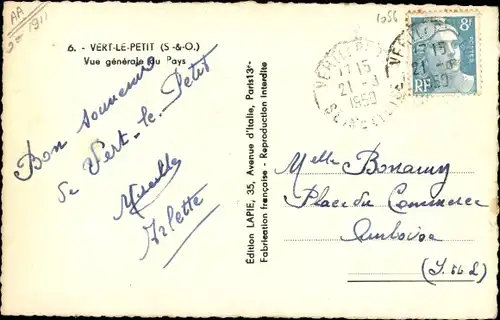 AA
1911
1056
6. - VERT-LE-PETIT (S-&-O.)
Vue générale du Pays
Bon souvenir
de Vert-le-Petit
Mireille
Arlette
Édition LAPIE, 35, Avenue d'Italie, Paris13e
Fabrication française - Reproduction Interdite
VERT-LE-PETIT
17 15
21 -8
1950
SEINE-ET-OISE
8F
POSTES
RF
Melle Bonamy
Place du Commerce
Amboise
(I. et L)